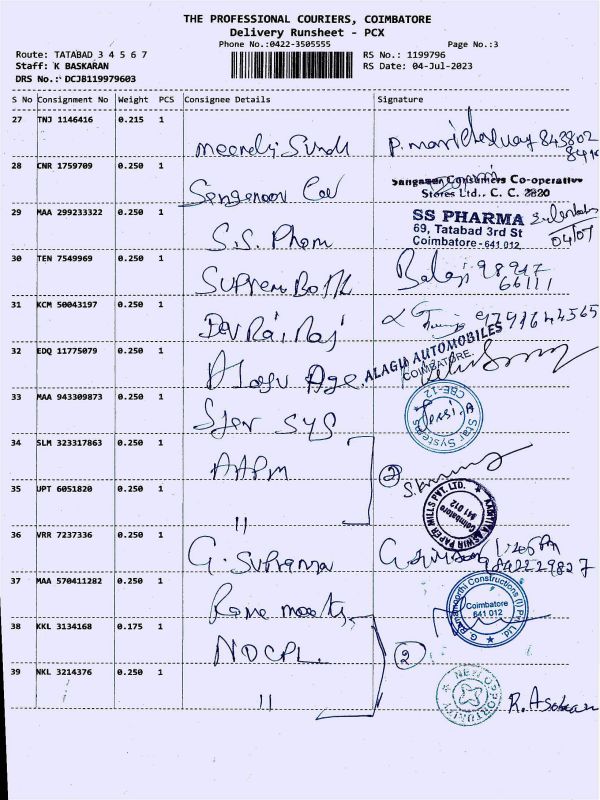 THE PROFESSIONAL COURIERS, COIMBATORE
Delivery Runsheet - PCX
Phone No.:0422-3505555 Page No.:3
Route: TATABAD 3 4 5 6 7 RS No.: 1199796
Staff: K BASKARAN RS Date: 04-Jul-2023
DRS No.: DCJB119979603
S No Consignment No Weight PCS Consignee Details Signature
27 TNJ 1146416 0.215 1
28 CNR 1759709 0.250 1
Sanganur Consumers Co-operative
Stores Ltd., C. C. 2820
29 MAA 299233322 0.250 1 S.S. Pham
SS PHARMA
69, Tatabad 3rd St
Coimbatore - 641 012
04/07
30 TEN 7549969 0.250 1 Balaji 98947
66111
31 KCM 50043197 0.250 1 Dev Rai Raj 9791644565
32 EDQ 11775079 0.250 1 Alagu Age
ALAGU AUTOMOBILES
COIMBATORE.
33 MAA 943309873 0.250 1 Ster SYS
Star Systems
CBE-12
34 SLM 323317863 0.250 1 AAPM
2
35 UPT 6051820 0.250 1 11
ASWIR PAPER MILLS PVT. LTD.
Coimbatore
641 012
36 VRR 7237336 0.250 1 G. Suprama
9842229827
37 MAA 570411282 0.250 1 Rama moorthy
Constructions (I) Pvt. Ltd.
Coimbatore
641 012
38 KKL 3134168 0.175 1 NOCPL
2
39 NKL 3214376 0.250 1 11
NEW OPPORTUNITY
R. Asokan